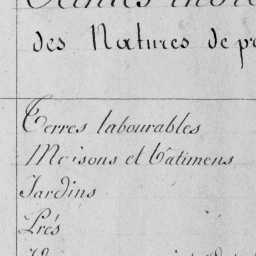 des Natures de pr
Terres labourables
Maisons et batimens
Jardins
Prés